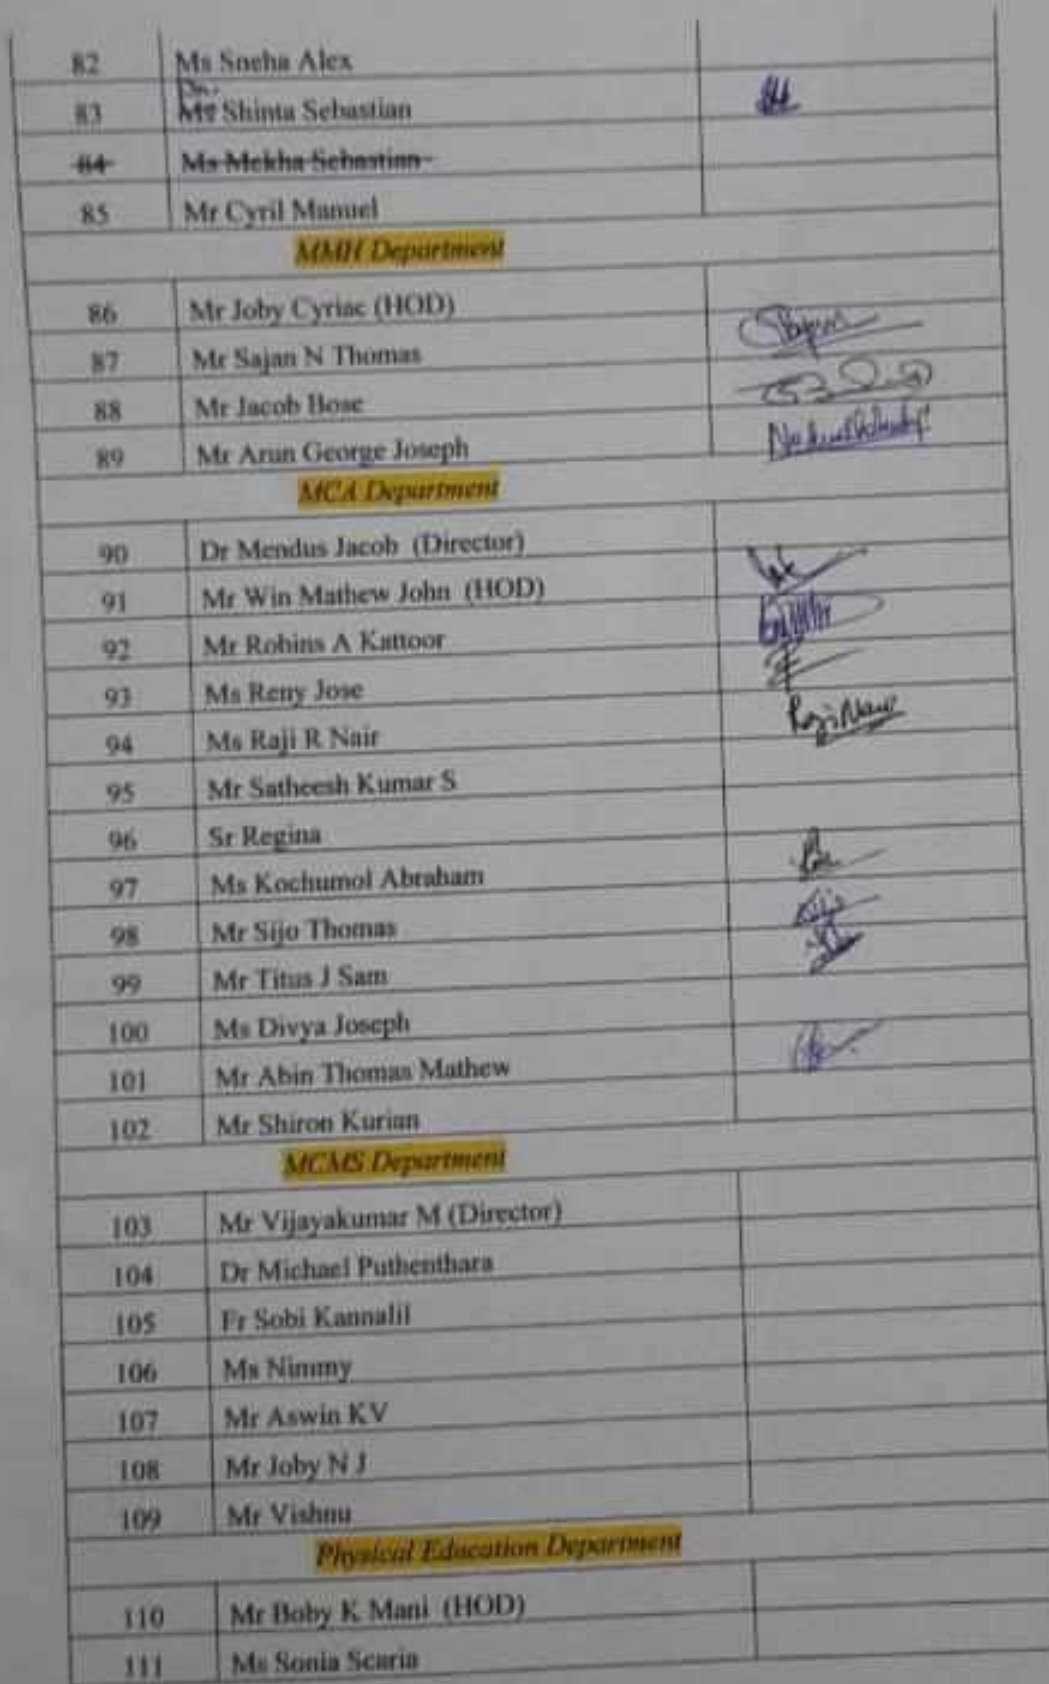 82 Ms Sneha Alex
Dr.
83 Ms Shinta Sebastian
84 Ms Mekha Sebastian
85 Mr Cyril Manuel
MMH Department
86 Mr Joby Cyriac (HOD)
87 Mr Sajan N Thomas
88 Mr Jacob Bose
89 Mr Arun George Joseph
MCA Department
90 Dr Mendus Jacob (Director)
91 Mr Win Mathew John (HOD)
92 Mr Robins A Kattoor
93 Ms Reny Jose
94 Ms Raji R Nair
95 Mr Satheesh Kumar S
96 Sr Regina
97 Ms Kochumol Abraham
98 Mr Sijo Thomas
99 Mr Titus J Sam
100 Ms Divya Joseph
101 Mr Abin Thomas Mathew
102 Mr Shiron Kurian
MCMS Department
103 Mr Vijayakumar M (Director)
104 Dr Michael Puthenthara
105 Fr Sobi Kannalil
106 Ms Nimmy
107 Mr Aswin KV
108 Mr Joby N J
109 Mr Vishnu
Physical Education Department
110 Mr Boby K Mani (HOD)
111 Ms Sonia Scaria